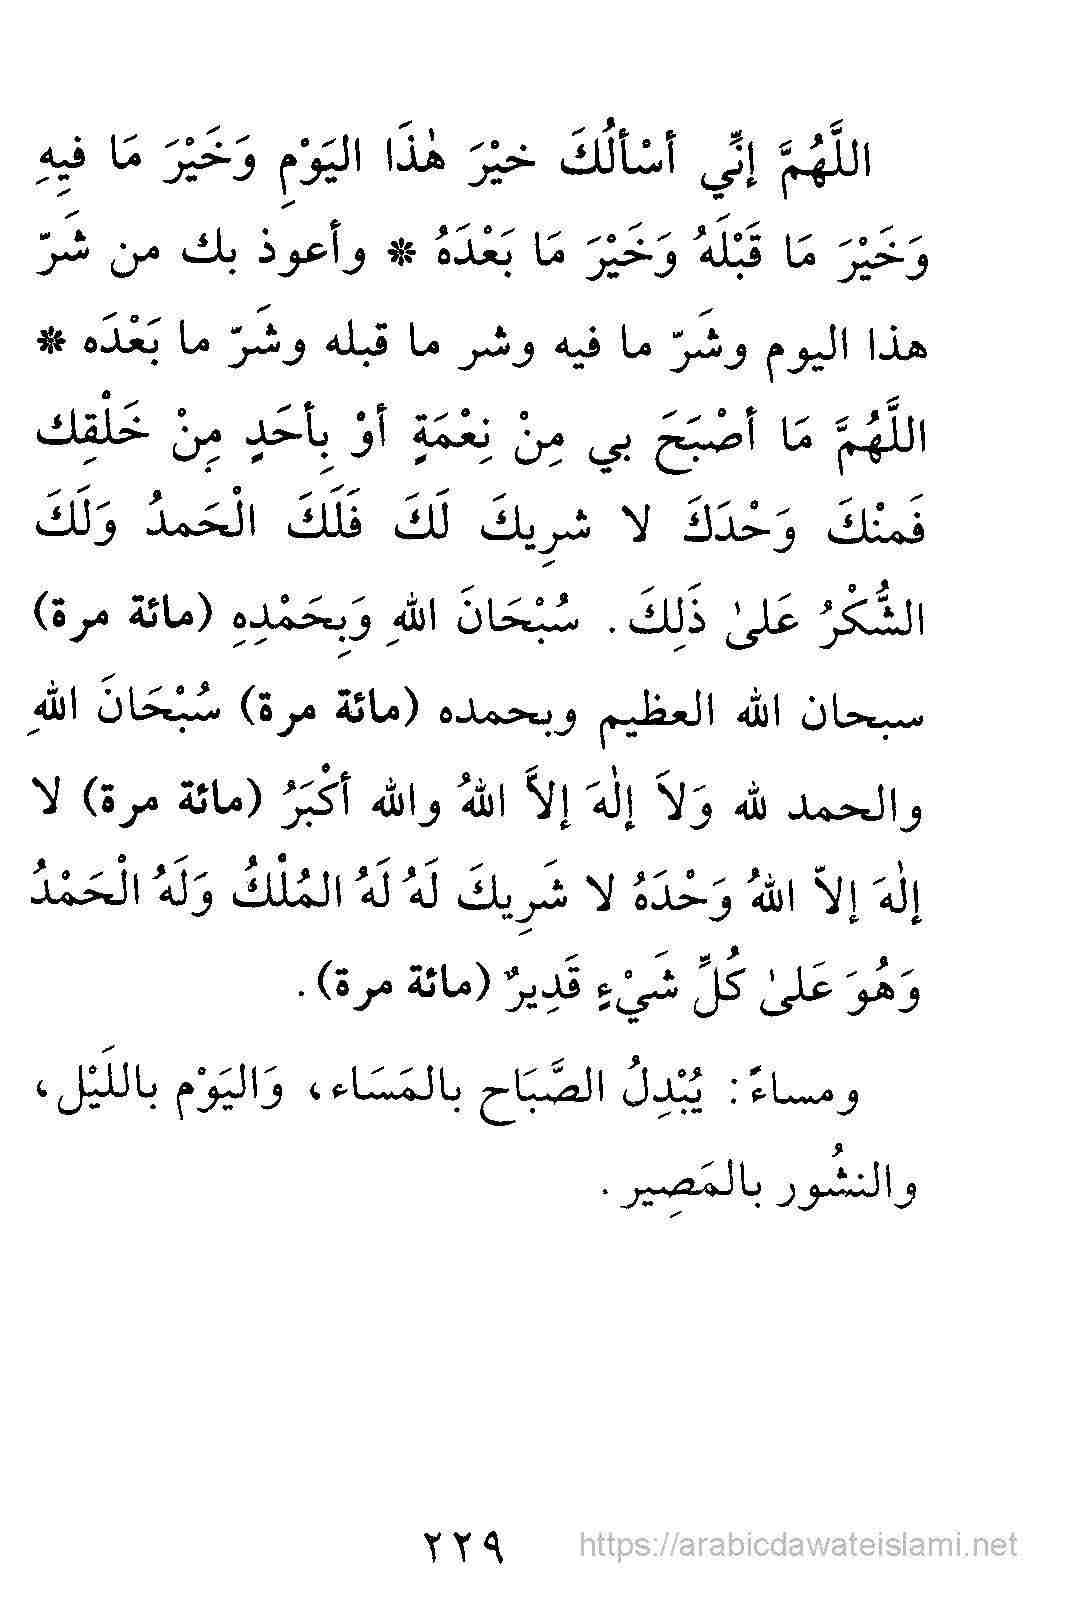 اللَّهُمَّ إنِّي أسْألُكَ خيْرَ هٰذَا اليَوْمِ وَخَيْرَ مَا فيِهِ
وَخَيْرَ مَا قَبْلَهُ وَخَيْرَ مَا بَعْدَهُ * وأعوذ بك من شَرّ
هذا اليوم وشَرّ ما فيه وشر ما قبله وشَرّ ما بَعْدَه *
اللَّهُمَّ مَا أصْبَحَ بي مِنْ نِعْمَةٍ أوْ بِأحَدٍ مِنْ خَلْقِك
فَمنْكَ وَحْدَكَ لا شرِيكَ لَكَ فَلَكَ الْحَمدُ وَلَكَ
الشُّكْرُ عَلىٰ ذَلِكَ. سُبْحَانَ اللهِ وَبِحَمْدِهِ (مائة مرة)
سبحان الله العظيم وبحمده (مائة مرة) سُبْحَانَ اللهِ
والحمد لله وَلاَ إلٰهَ إلاَّ اللهُ والله أكْبَرُ (مائة مرة) لا
إلٰهَ إلاّ اللهُ وَحْدَهُ لا شَرِيكَ لَهُ لَهُ المُلْكُ وَلَهُ الْحَمْدُ
وَهُوَ عَلىٰ كُلِّ شَيْءٍ قَدِيرٌ (مائة مرة).
ومساءً: يُبْدِلُ الصَّبَاح بالمَسَاء، وَاليَوْم باللَيْل،
والنشُور بالمَصِير.
٢٢٩ https://arabicdawateislami.net